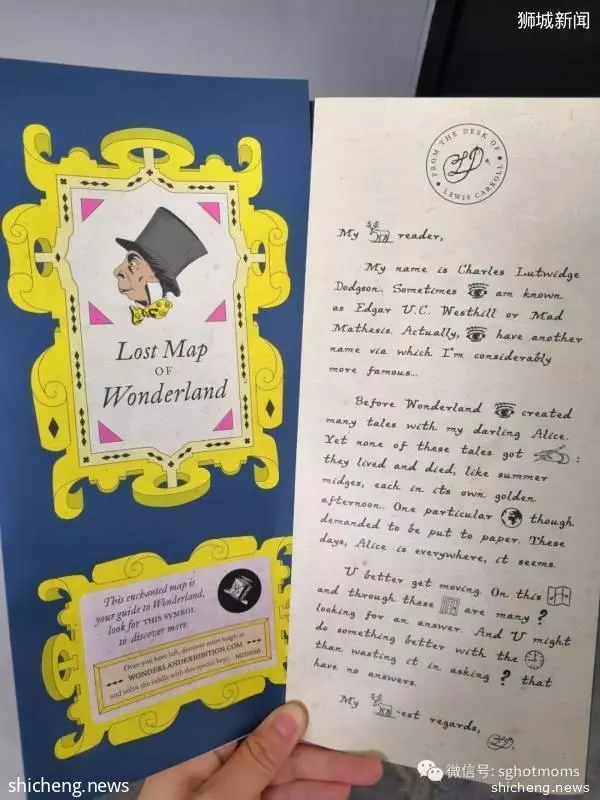 狮城新闻
Lost Map
OF
Wonderland
This enchanted map is
your guide to Wonderland,
look for THIS SYMBOL
to discover more.
Once you have left, discover more magic at
WONDERLANDEXHIBITION.COM
and solve the riddle with this special key:
FROM THE DESK OF
LEWIS CARROLL
My reader,
My name is Charles Lutwidge
Dodgson. Sometimes am known
as Edgar U.C. Westhill or Mad
Mathesis. Actually, have another
name via which I'm considerably
more famous...
Before Wonderland created
many tales with my darling Alice.
Yet none of these tales got :
they lived and died, like summer
midges, each in its own golden
afternoon. One particular though
demanded to be put to paper. These
days, Alice is everywhere, it seems.
U better get moving. On this
and through these are many ?
looking for an answer. And U might
do something better with the
than wasting it in asking ? that
have no answers.
My -est regards,
微信号: sghotmoms
shicheng.news
shicheng.news